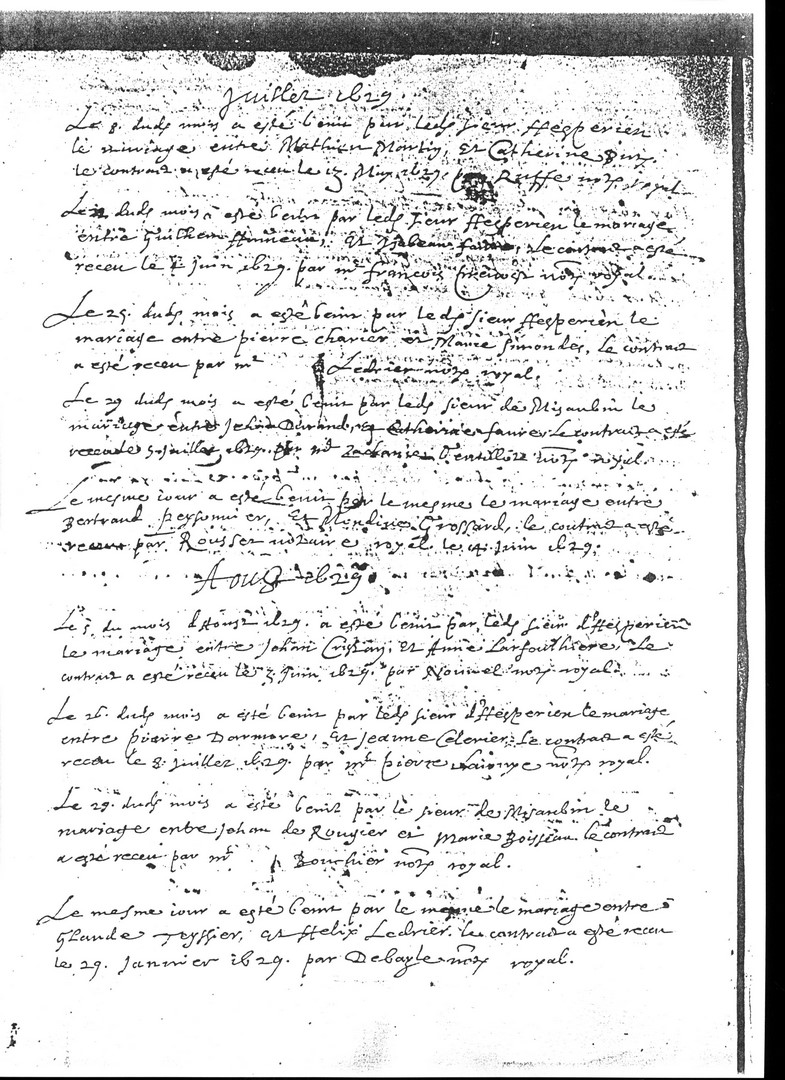 Juillet 1629.
Le 8. dudt mois a esté benit par ledt sieur d'Hesperien
le mariage entre Mathieu Martin, Et Catherine
le contrat a esté receu le 13. May 1629. par Ruffe notre royal
Le dudt mois a esté benit par ledt sieur d'Hesperien le mariage
entre Guilhem Et Isabeau Faure, le contrat a esté
receu le Juin 1629. par mr françois notre royal.
Le 25. dudt mois a esté benit par ledt sieur d'Hesperien le
mariage entre pierre charier et Marie Simondes, le contrat
a esté receu par mr Ledrier notre royal.
Le 29 dudt mois a esté benit par ledt sieur de Misaubin le
mariage entre Jehan Durand, et Catherine Faure, le contrat a esté
receu le 5. Juillet 1629. par mr Zacharie notre royal.
Le mesme iour a esté benit par le mesme le mariage entre
Bertrand Et Grossard, le contrat a esté
receu par Rousset notaire royal le 4. Juin 1629.
Aoust 1629.
Le 5. du mois d'Aoust 1629. a esté benit par ledt sieur d'Hesperien
le mariage entre Johan Et Anne Larfouthiere, Le
contrat a esté receu le 3. Juin 1629. par Nouuel notre royal.
Le 26. dudt mois a esté benit par ledt sieur d'Hesperien le mariage
entre pierre Darmore, Et Jeanne Celerier, Le contrat a esté
receu le 8. Juillet 1629. par mr pierre notre royal.
Le 29. dudt mois a esté benit par le sieur de Misaubin le
mariage entre Johan de Rougier et Marie Boisseau. le contrat
a esté receu par mr Bouchier notre royal.
Le mesme iour a esté benit par le mesme le mariage entre
Glaude Teyssier, et Helix Ledrier. le contrat a esté receu
le 29. Januier 1629. par Debayle notre royal.